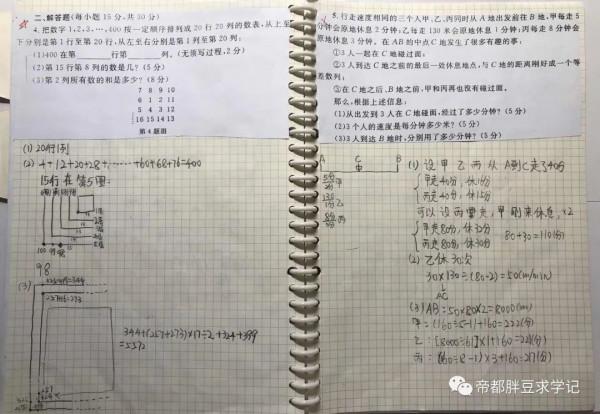 二、解答题(每小题 15 分,共 30 分)
4.把数字 1,2,3,…,400 按一定顺序排列成 20 行 20 列的数表,从上至
下分别是第 1 行至第 20 行,从左至右分别是第 1 列至第 20 列:
(1)400 在第 行第 列。(无须写过程,2 分)
(2)第 15 行第 8 列的数是几?(5 分)
(3)第 2 列所有数的和是多少?(8 分)
7 8 9 10
6 1 2 11
5 4 3 12
16 15 14 13
第 4 题图
(1) 20行1列
(2) 4+12+20+28+……+60+68+76=400
15行在第5圈
98
(3)
344+(257+273)×17÷2+324+399
=5572
5.行走速度相同的三个人甲、乙、丙同时从 A 地出发前往 B 地,甲每走 5
分钟会原地休息 2 分钟;乙每走 130 米会原地休息 1 分钟;丙每走 8 分钟会
原地休息 3 分钟。在 AB 的中点 C 地发生了很多有趣的事:
①3 人一起在 C 地碰过面;
②3 人到达 C 地之前的最后一处休息地点,与 C 地的距离刚好成一个等
差数列;
③在 C 地之后、B 地之前,甲和丙再也没有碰过面。
那么,根据上述信息:
(1)从出发到 3 人在 C 地碰面,经过了多少分钟?(5 分)
(2)3 个人的速度是每分钟多少米?(5 分)
(3)3 人到达 B 地时,分别用了多少分钟?(5 分)
A C B
(1) 设甲乙丙从A到C走了40分
甲走40分,休16分
丙走40分,休15分
甲走80分,休32分
丙走80分,休30分
80+30=110(分)
(2) 乙休30次
30×130÷(80-2)=50(m/min)
AC
(3) AB:50×80×2=8000(m)
帝都胖豆求学记